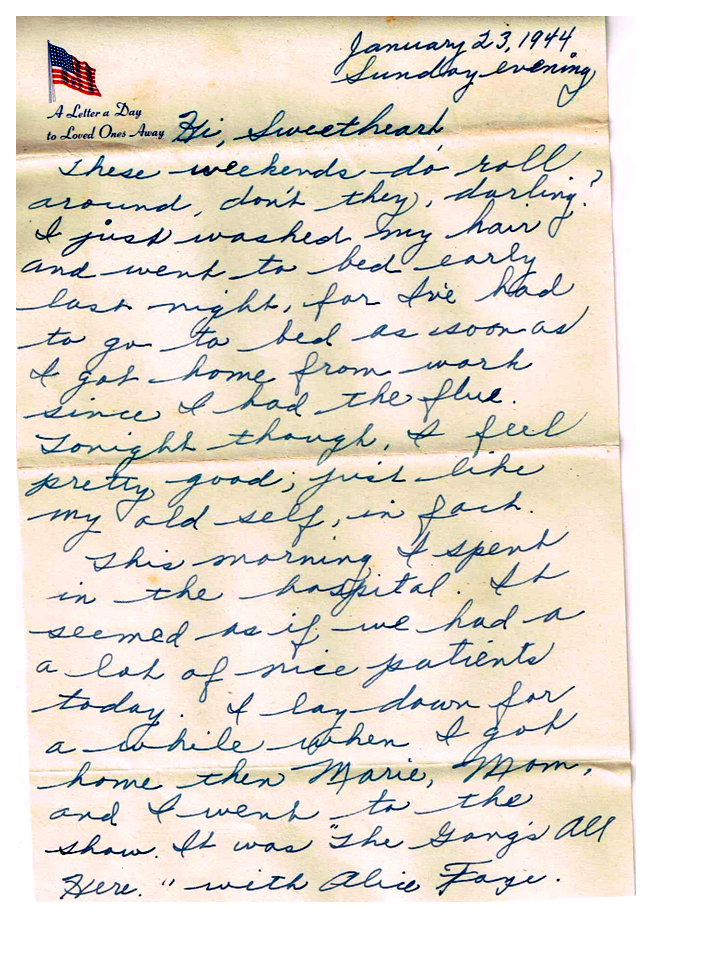 January 23, 1944
Sunday evening
A Letter a Day
to Loved Ones Away
Hi, Sweetheart
These weekends do roll
around, don't they, darling?
I just washed my hair
and went to bed early
last night, for I've had
to go to bed as soon as
I got home from work
since I had the flue.
Tonight though, I feel
pretty good; just like
my old self, in fact.
This morning I spent
in the hospital. It
seemed as if we had a
a lot of nice patients
today. I lay down for
a while when I got
home then Marie, Mom,
and I went to the
show. It was "The Gang's All
Here." with Alice Faye.